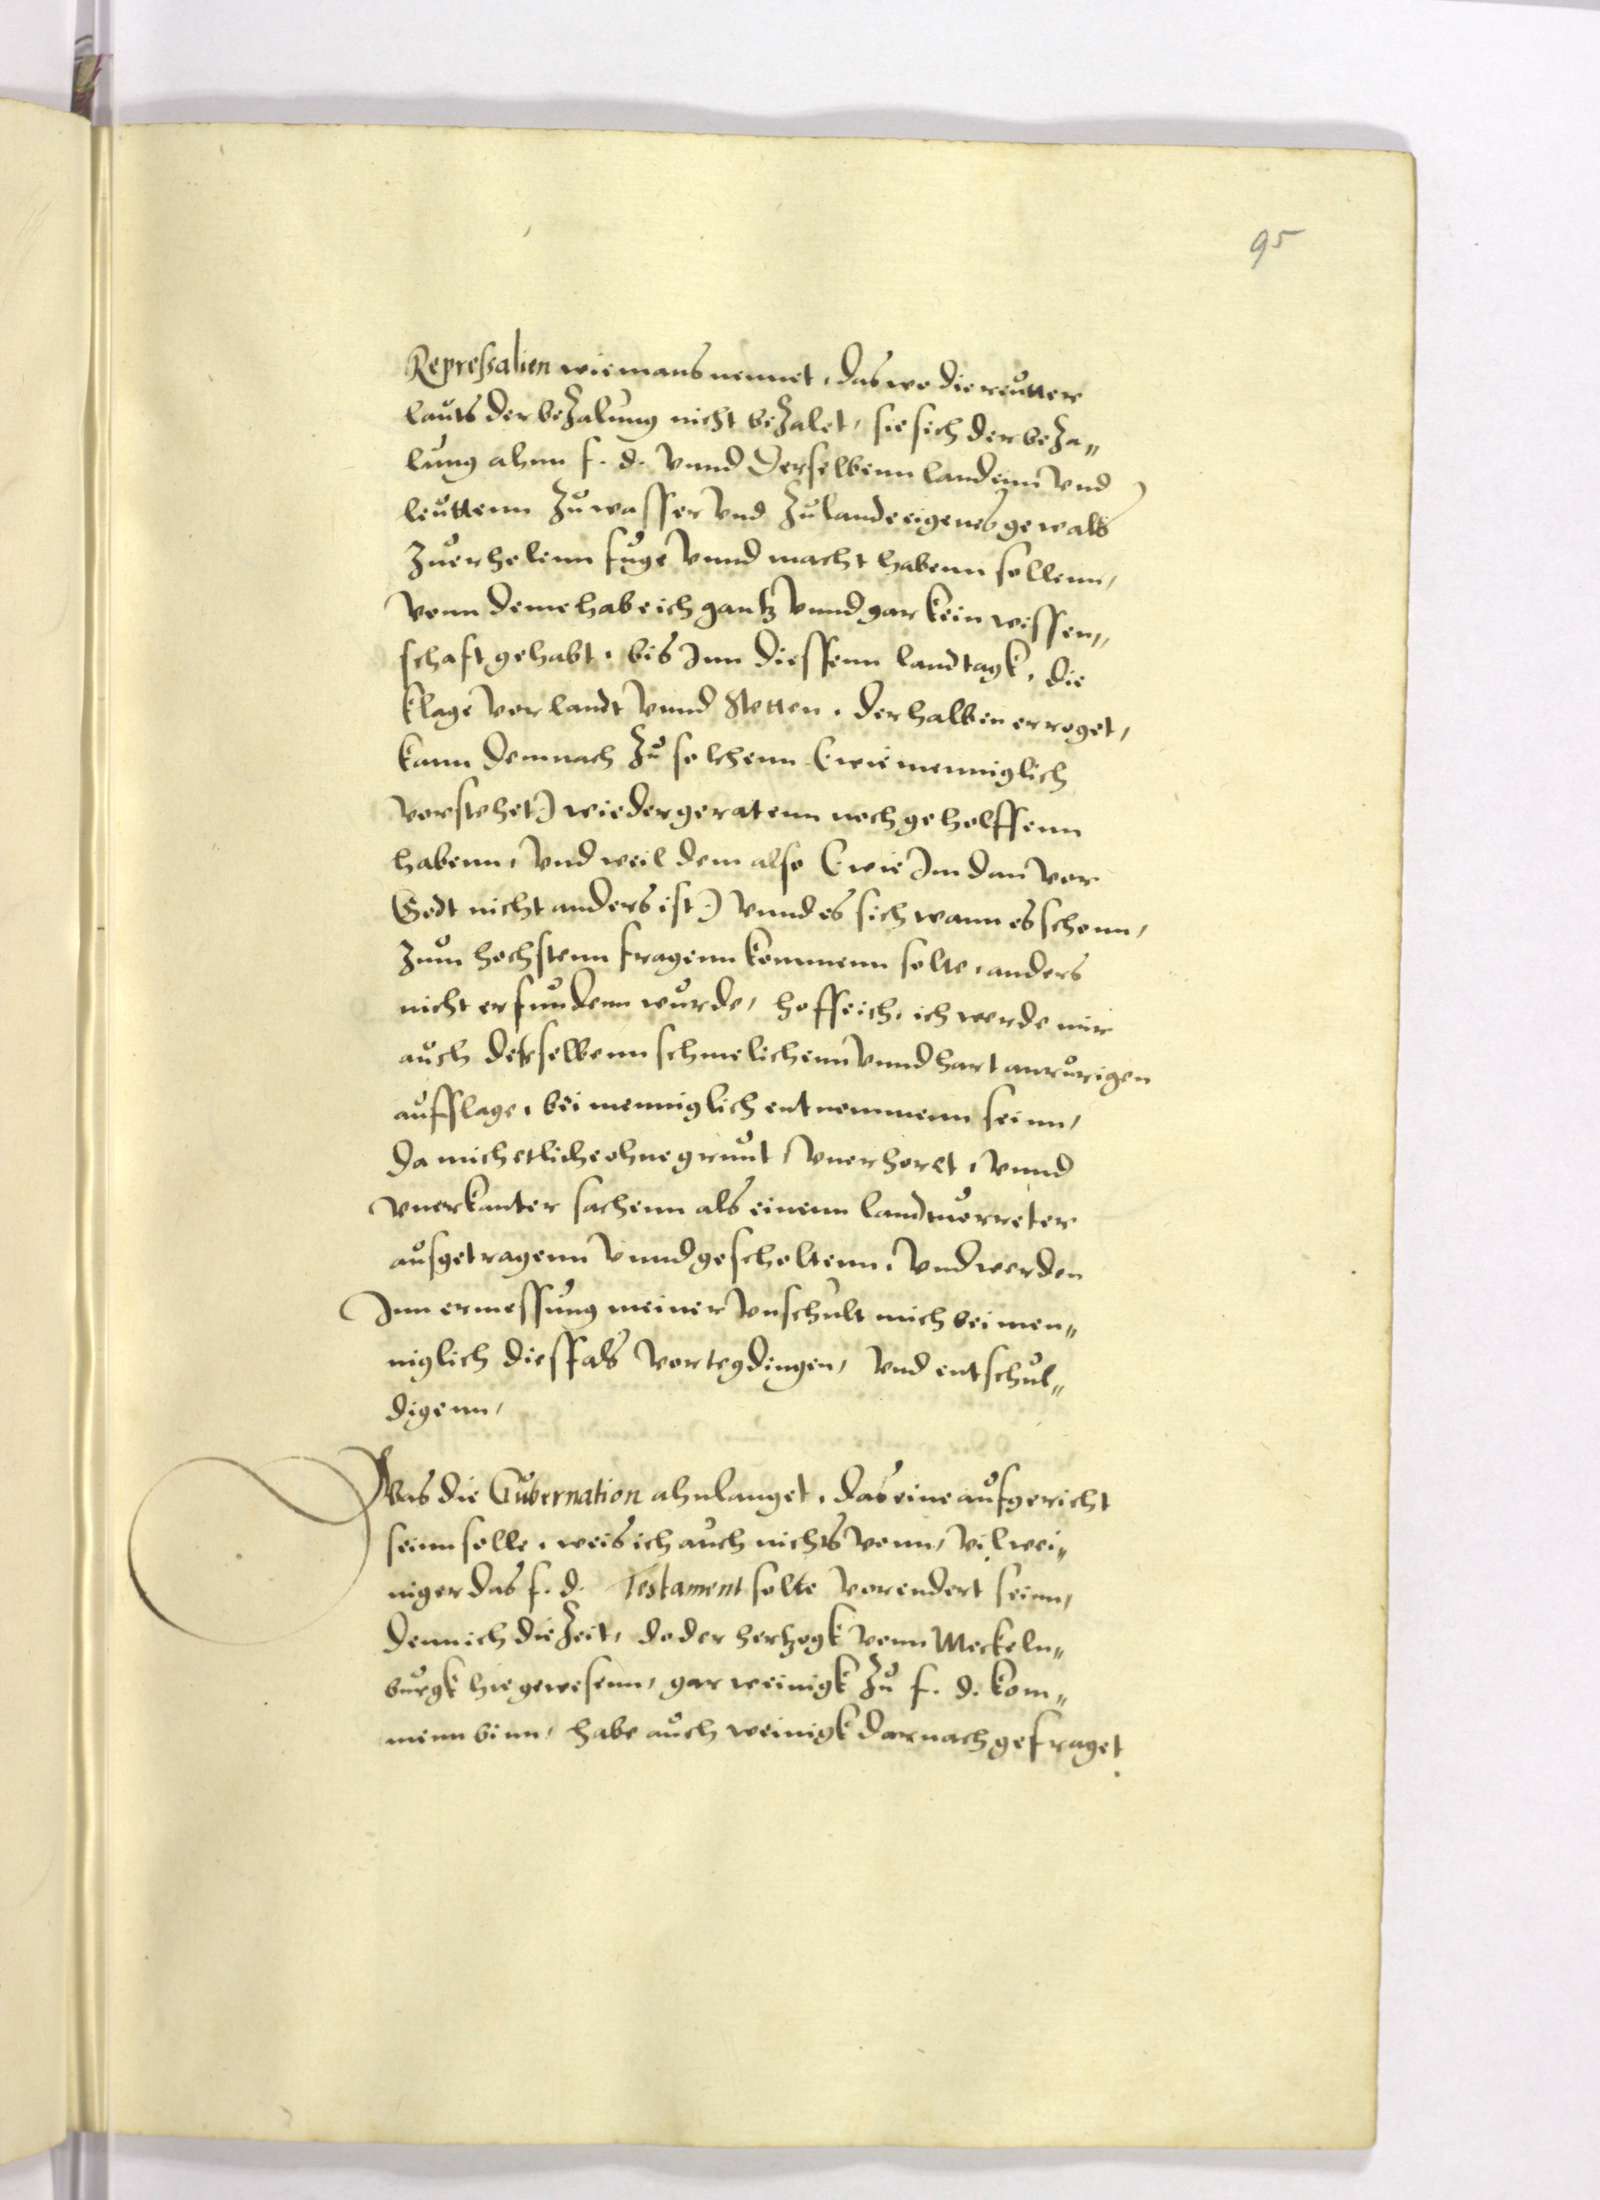 95
Repressalien wie mans nennet, das wo die reutter
lauts der bezalung nicht bezalet, sie sich der beza„
lung ahnn f. d. vnnd derselbenn landenn vnd
leuttenn zu wasser vnd zu lande eigenes gewalts
zuerholenn fuge vnnd macht habenn sollenn,
vonn deme habe ich gantz vnnd gar kein wissen„
schaft gehabt, bis Inn diessenn landtagk, die
klage vor landt vnnd Stetten, derhalben erreget,
kann demnach zu solchenn (: wie menniglich
vorstehet :) wieder geratenn noch geholffenn
habenn, vnd weil dem also (: wie Im dan vor
Gott nicht anders ist :) vnnd es sich wann es schonn,
zum hochstenn fragenn kommenn solte, anders
nicht erfundenn wurde, hoffe ich, ich werde mir
auch desselbenn schmelichenn vnnd hart anrurigen
aufflage, bei menniglich entnommenn seinn,
da mich etliche ohne grunt, vnerhort, vnnd
vnerkanter sachenn als einenn landtuorreter
ausgetragenn vnnd gescholtenn, vnd werden
Inn ermessung meiner vnschult mich bei men„
niglich diesfals vortegdingen, vnd entschul„
digenn,
Was die Gubernation ahnlanget, das eine aufgericht
seinn solle, weis ich auch nichts vonn, vil wei„
niger das f. d. Testament solte vorendert seinn,
denn ich die zeit, do der hertzogk vonn Meckeln„
burgk hie gewesenn, gar weinigk zu f. d. kom„
menn binn, habe auch weinigk darnach gefraget.